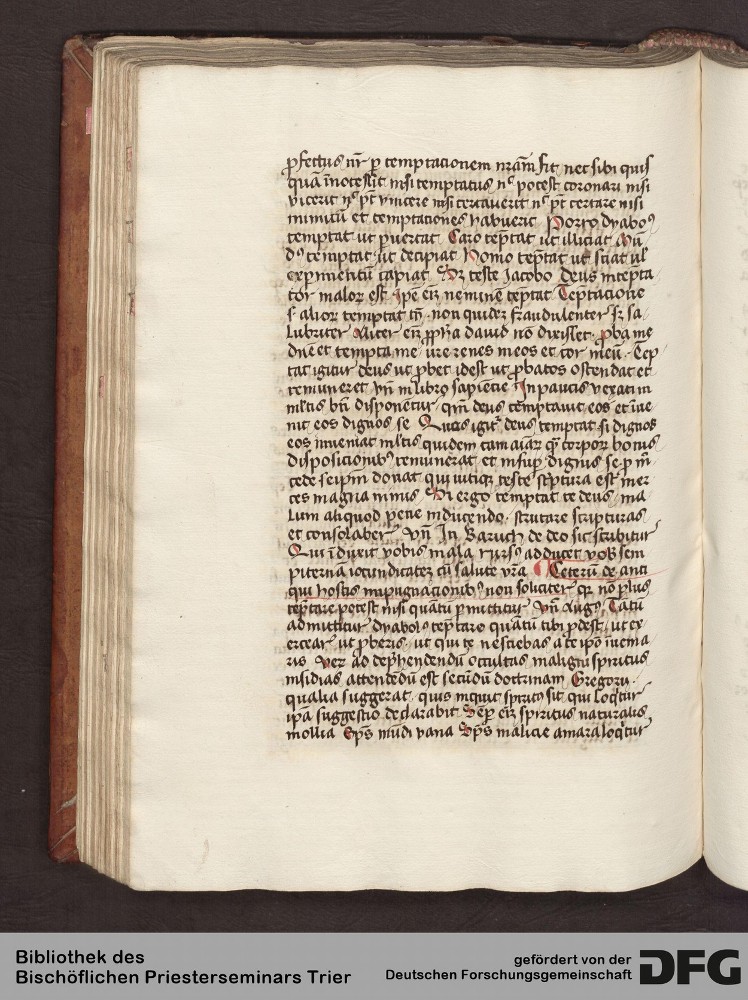 ꝓfectus nr̄ ꝑ temptacionem nr̄am fit nec sibi quis
quā īnotescit nisi temptatus nᶜ potest coronari nisi
vicerit nᶜ pt̄ vincere nisi certauerit nᶜ pt̄ certare nisi
inimicū et temptationes habuerit Porro dyabo⁹
temptat ut ꝑuertat Caro tēptat ut illiciat Mū
d⁹ temptat ut decipiat Homo tēptat ut sciat ul̄
exꝑimentū capiat teste Jacobo Deus intēpta
tor malor̄ est ip̄e eī neminē tēptat Tēptacione
s. alior̄ temptat tn̄ non quidē fraudulenter sꝫ sa
lubriter Aliter eī ꝓph̄a dauid nō dixisset ꝓba me
dn̄e et tempta me ure renes meos et cor meū Tēp
tat igitur deus ut ꝓbet idest ut ꝓbatos ostendat et
remuneret vn̄ in libro sapiēcie In paucis vexati in
ml̄tis bn̄ disponētur qm̄ deus temptauit eos et īue
nit eos dignos se Quos igitᷣ deus temptat si dignos
eos inueniat ml̄tis quidem tam aīaꝝ qᷓ corpoꝝ bonis
disposicionibꝰ remunerat et insuꝑ dignus se ꝓ m̄
cede seip̄m donat qui utiqꝫ teste sc̄ptura est mer
ces magna nimis Si ergo temptat te deus ma
lum aliquod pene inducendo scrutare scripturas
et consolaberꝭ vn̄ In Baruch de deo sic scribitur
Qui īduxit vobis mala rursꝰ adducet vob̄ sem
piternā iocunditatē cū salute vr̄a Ceterū de anti
qui hostis inpugnacionibꝰ non solliciterꝭ qꝛ nō plus
tēptare potest nisi quātū ꝑmittitur vn̄ Augꝰ Tātū
admittitur dyabolꝰ tēptare quātū tibi ꝓdest ut ex
ercearꝭ ut ꝓberis ut qui te nesciebas a te ip̄o inuenia
ris Verꝫ ad dep̄hendendū occultas maligni spiritus
insidias attendēdū est secūdū doctrinam Gregorii
qualia suggerat quis inquit spiritꝰ sit qui loqͥtur
ip̄a suggestio declarabit Semꝑ eī spiritus naturalis
mollia Sp̄s mūdi vana Sp̄s malicie amara loqͥtur
Bibliothek des
Bischöflichen Priesterseminars Trier
gefördert von der
Deutschen Forschungsgemeinschaft
DFG